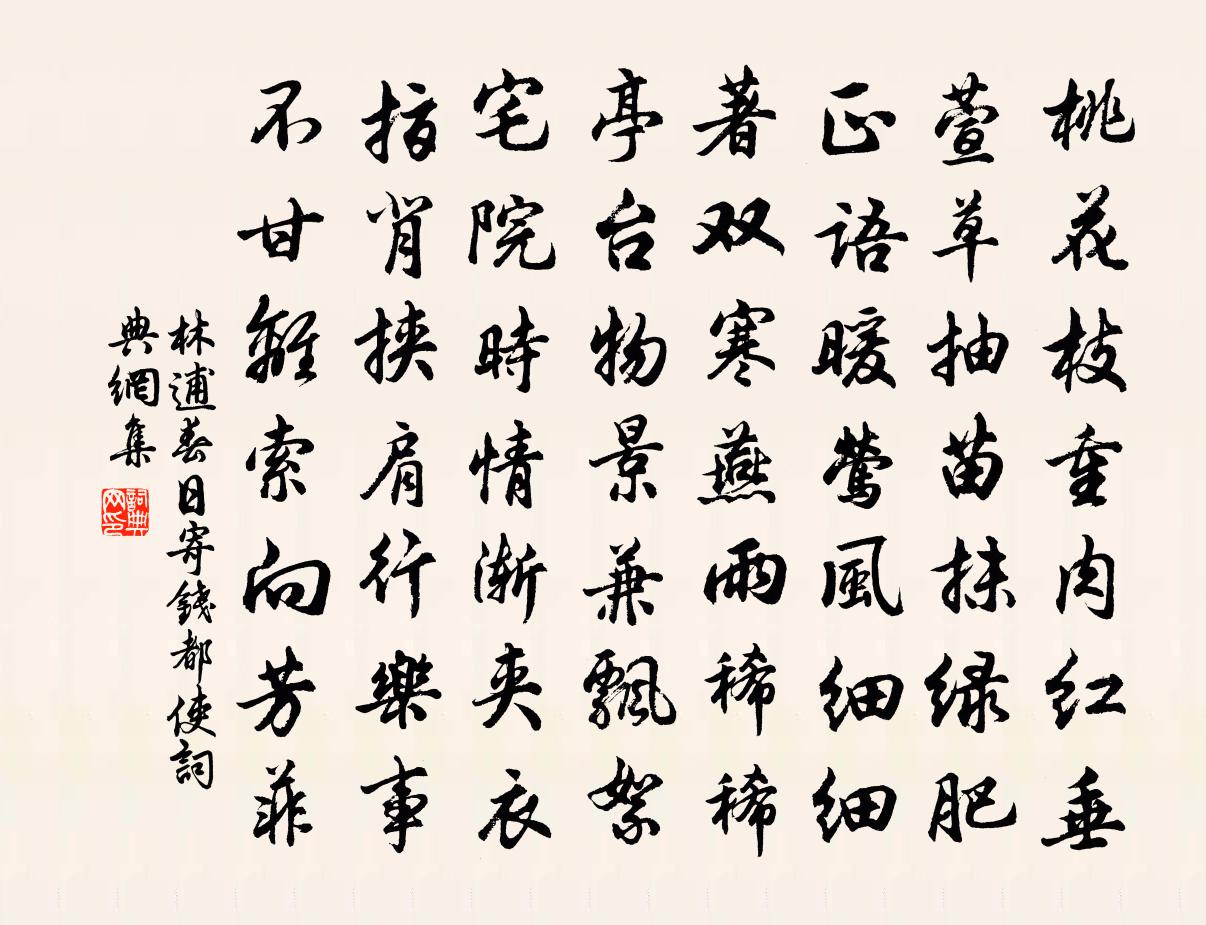 桃花枝重肉红垂
萱草抽苗抹绿肥
正语暖莺風细细
著双寒燕雨稀稀
亭台物景兼飘絮
宅院時情渐夹衣
指肖挟肩行樂事
不甘離索向芳菲
林逋春日寄錢都使詞
典網集
詞典
网印